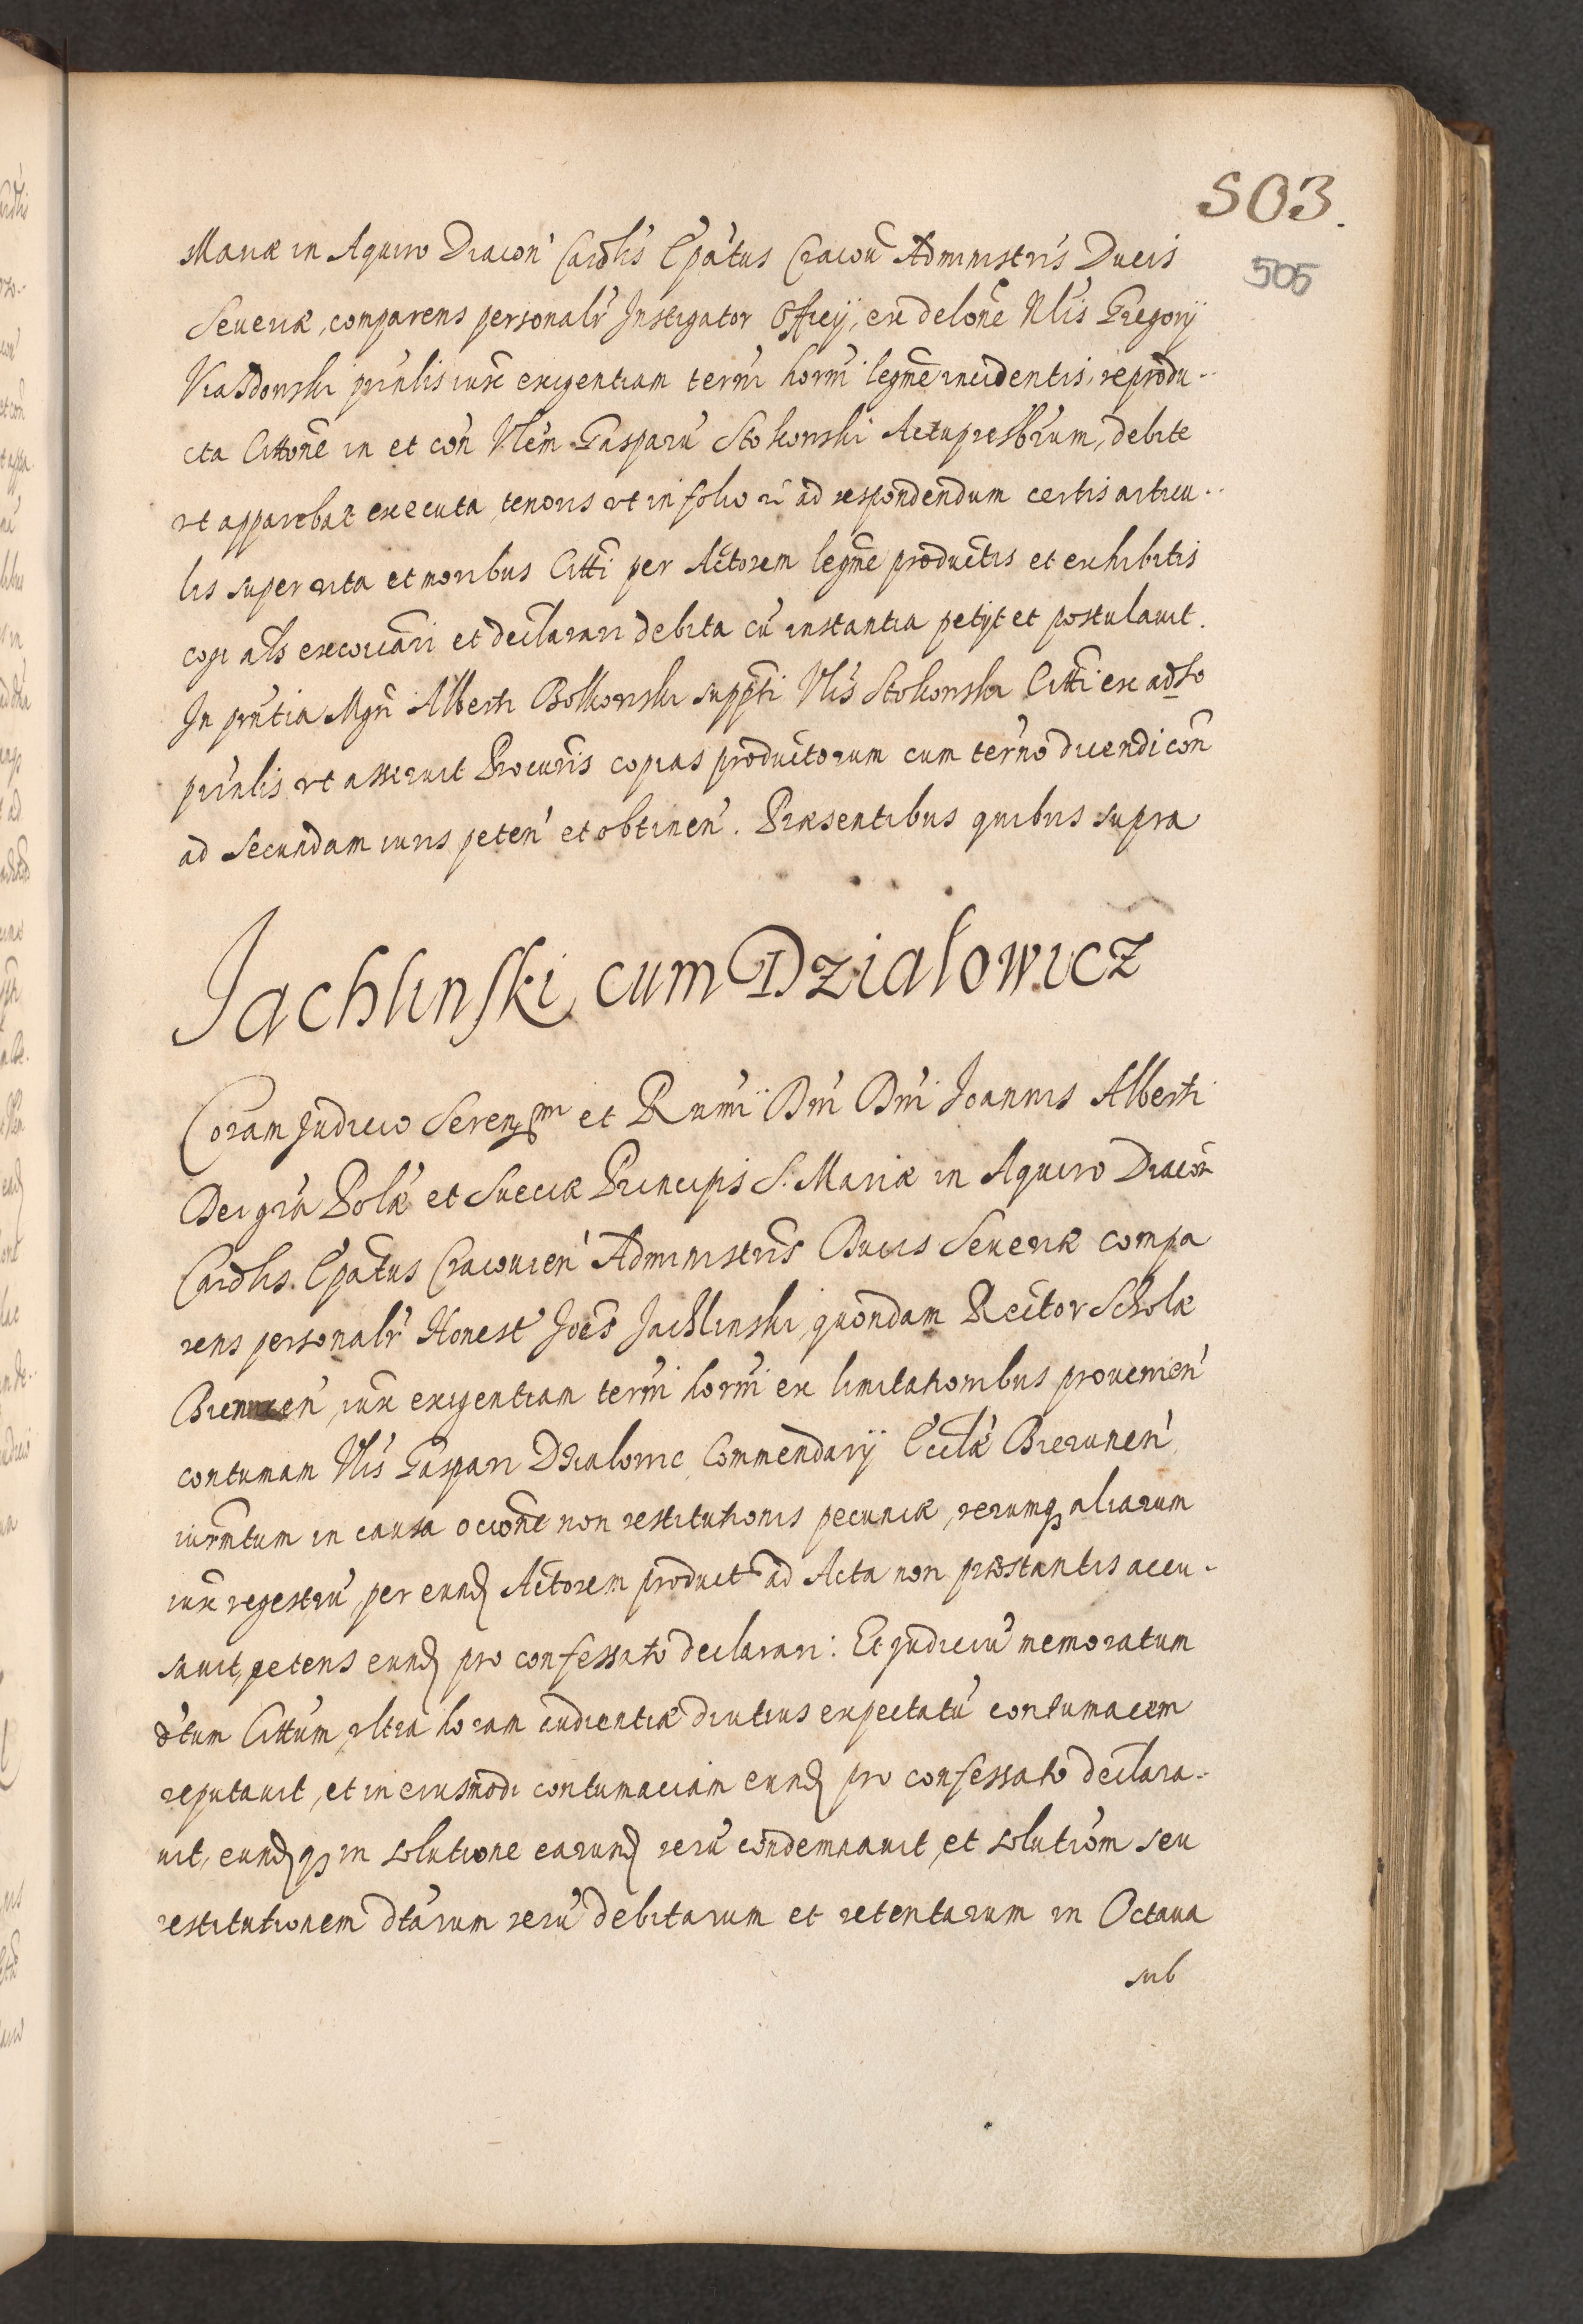 503.
505
Mariæ in Aquiro Diacon' Cardlis Epatus Cracou Administris Ducis
Seueriæ, comparens personalr Instigator Officÿ, ex delone Nlis Gregorÿ
prinlis iux exigentiam termi hormi legme incidentis, reprodu-
cta Cittone in et con Vlem Gasparu Stokowski Actupresbrum, debite
vt apparebat executa, tenoris vt in folio ri ad respondendum certis articu-
lis super vita et moribus Citti per Actorem legme productis et exhibitis
cogi als excoicari et declarari debita cu instantia petÿt et postulauit.
In pntia Mgri Alberti Bolkowski suppti Vlis Stokowski Citti ex adso
prinlis vt asseruit Procuris copias productorum cum termo dicendi con
ad Secundam iuris peten' et obtinen'. Præsentibus quibus supra
Jachlinski cum Dzialowicz
Coram Judicio Serenssmi et Rnmi Dni Dni Joannis Alberti
Dei gra Polæ et Sueciæ Principis S. Mariæ in Aquiro Diacon
Cardlis. Epatus Cracouien' Administris Ducis Seueriæ compa
rens personalr Honest' Joes Jachlinski, quondam Rector Scholæ
iux exigentiam termi hormi ex limitationibus prouenien'
contumam Vlis Gaspari Dzialowic Commendarÿ Eccllæ Bierunen'
iurmtum in causa occone non restitutionis pecuniæ, rerumq aliarum
iux regestru per eund Actorem product ad Acta non præstantis accu-
sauit, petens eund pro confessato declarari: Et Judiciu memoratum
dtum Cittum, vltra horam audientiæ diutius expectatu contumacem
reputauit, et in eiusmodi contumaciam eund pro confessato declara-
uit, eundq in solutione earund reru condemnauit, et solutiom seu
restitutionem dtarum reru debitarum et retentarum in Octaua
sub